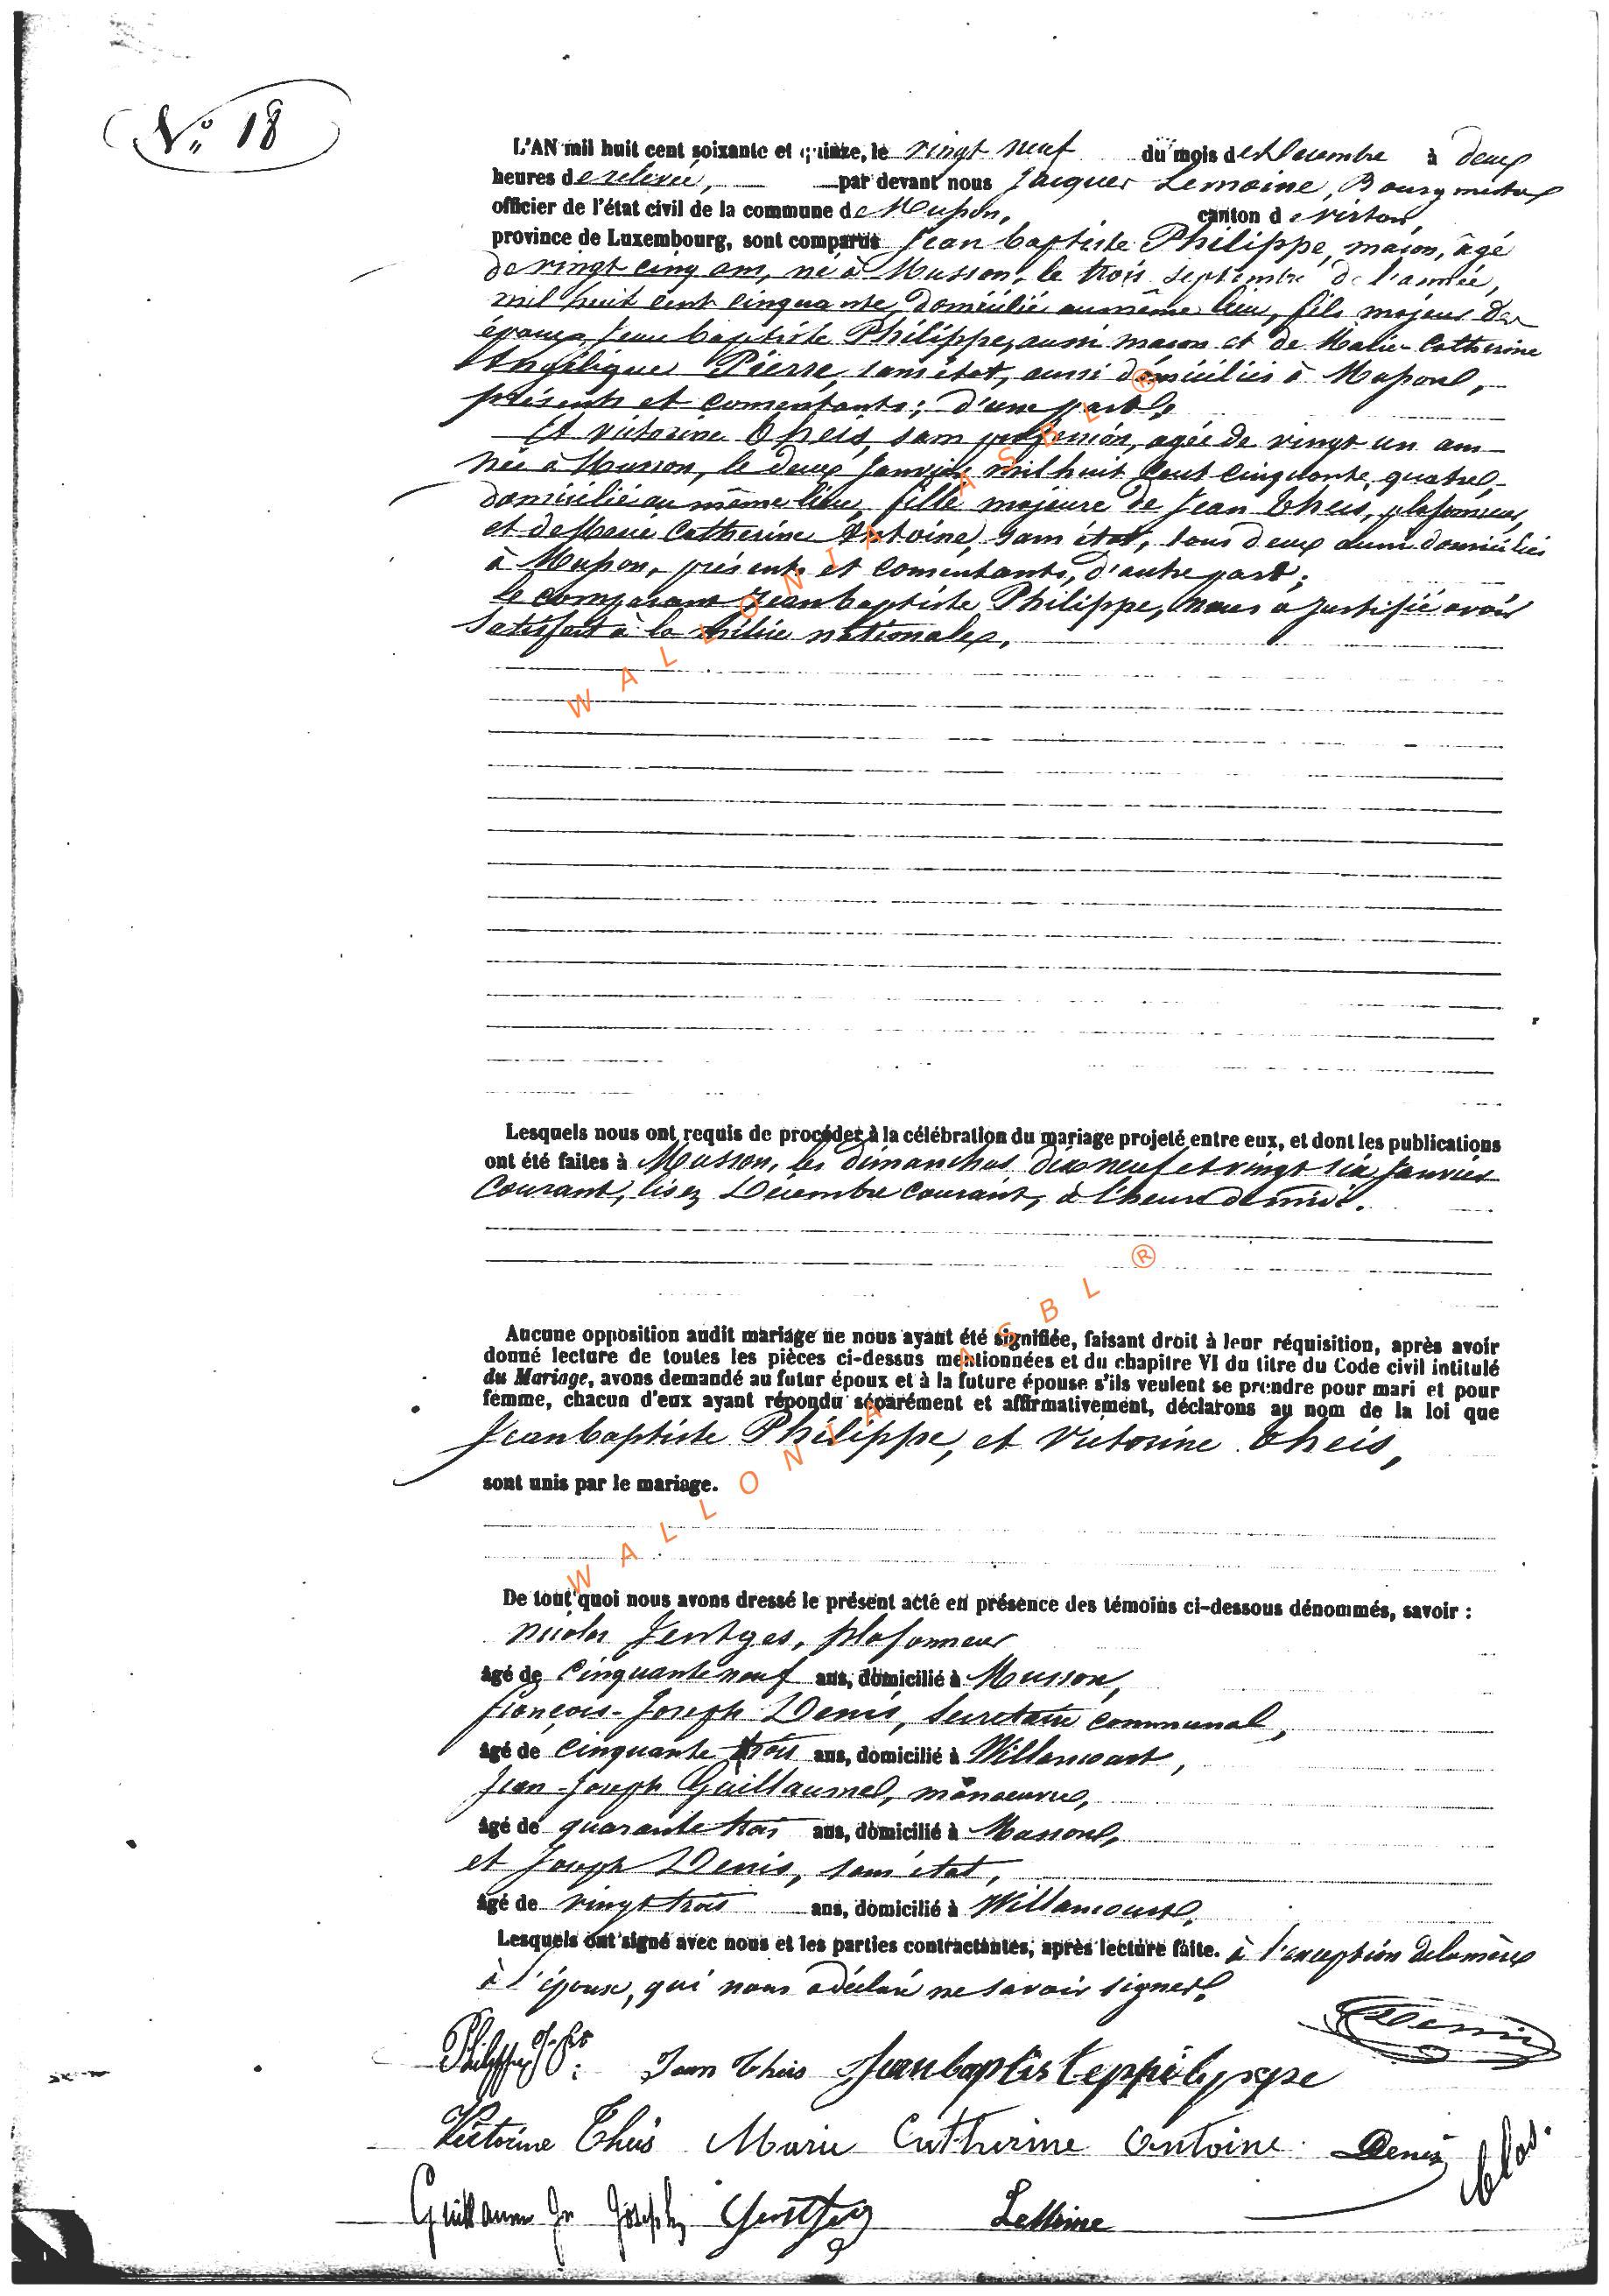 N° 18
L'AN mil huit cent soixante et quinze, le vingt neuf du mois de Decembre à deux
heures de relevée, par devant nous Jacques Lemoine, Bourgmestre
officier de l'état civil de la commune de Musson, canton de virton,
province de Luxembourg, sont comparus Jean baptiste Philippe, maçon, âgé
de vingt cinq ans, né à Musson, le trois septembre de l'année,
mil huit cent cinquante, domicilié au même lieu, fils majeur des
époux, Jean baptiste Philippe, aussi maçon et de Marie-Catherine
Angélique Pierre, sans état, aussi domiciliés à Musson,
présents et consentants; d'une part,
Et victorine Theis, sans profession, agée de vingt un ans
née à Musson, le deux Janvier mil huit cent cinquante quatre,
domiciliée au même lieu, fille majeure de Jean Theis, plafonneur,
et de Marie Catherine Antoine, sans état, tous deux aussi domiciliés
à Musson, présents et consentants, d'autre part;
le comparant Jean baptiste Philippe, nous a justifié avoir
satisfait à la milice nationale,
Lesquels nous ont requis de procéder à la célébration du mariage projeté entre eux, et dont les publications
ont été faites à Musson, les dimanches dix neuf et vingt six Janvier
Courant, lisez Décembre courant, à l'heure de midi.
Aucune opposition audit mariage ne nous ayant été signifiée, faisant droit à leur réquisition, après avoir
donné lecture de toutes les pièces ci-dessus mentionnées et du chapitre VI du titre du Code civil intitulé
du Mariage, avons demandé au futur époux et à la future épouse s'ils veulent se prendre pour mari et pour
femme, chacun d'eux ayant répondu séparément et affirmativement, déclarons au nom de la loi que
Jean baptiste Philippe, et Victorine Theis,
sont unis par le mariage.
De tout quoi nous avons dressé le présent acte en présence des témoins ci-dessous dénommés, savoir :
Nicolas Jentges, plafonneur
âgé de cinquante neuf ans, domicilié à Musson,
françois-Joseph Denis, Secrétaire communal,
âgé de cinquante trois ans, domicilié à Willancourt,
Jean-Joseph Guillaume, manoeuvre,
âgé de quarante trois ans, domicilié à Musson,
et Joseph Denis, sans état,
âgé de vingt trois ans, domicilié à Willancourt,
Lesquels ont signé avec nous et les parties contractantes, après lecture faite. à l'exception de la mère
à l'époux, qui nous a déclaré ne savoir signer.
Denis
Philippe J. Bte Jean Theis Jean baptiste ppilyppe
Victorine Theis Marie Catherine Antoine Denis
Guillaume Jn Joseph Jentges LeMoine
WALLONIA ASBL ®
WALLONIA ASBL ®